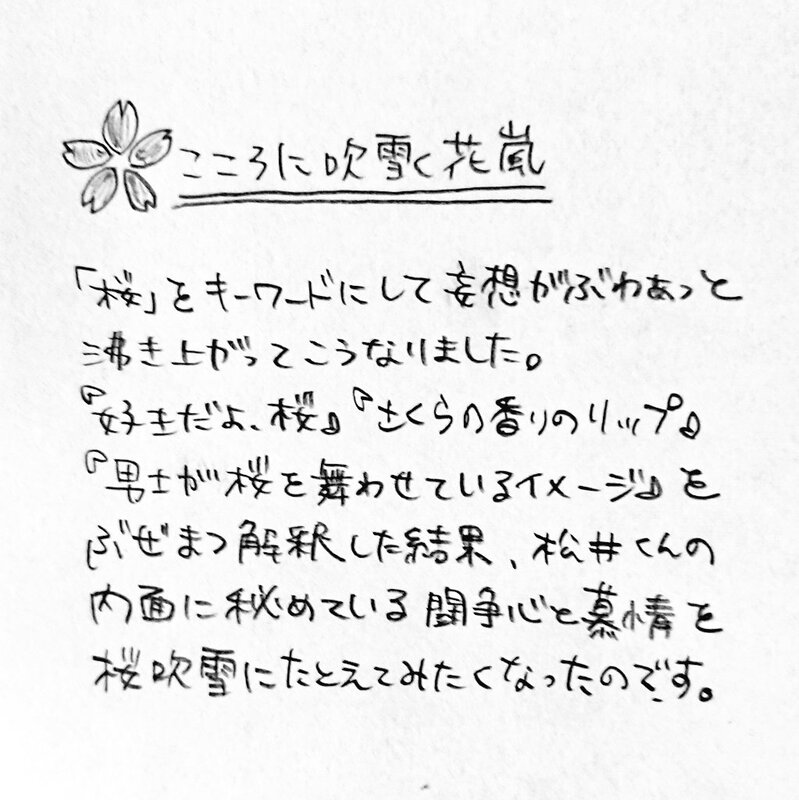 こころに吹雪く花嵐
「桜」をキーワードにして妄想がぶわあっと
沸き上がってこうなりました。
『好きだよ、桜』『さくらの香りのリップ』
『男士が桜を舞わせているイメージ』を
ぶぜまつ解釈した結果、松井くんの
内面に秘めている闘争心と慕情を
桜吹雪にたとえてみたくなったのです。